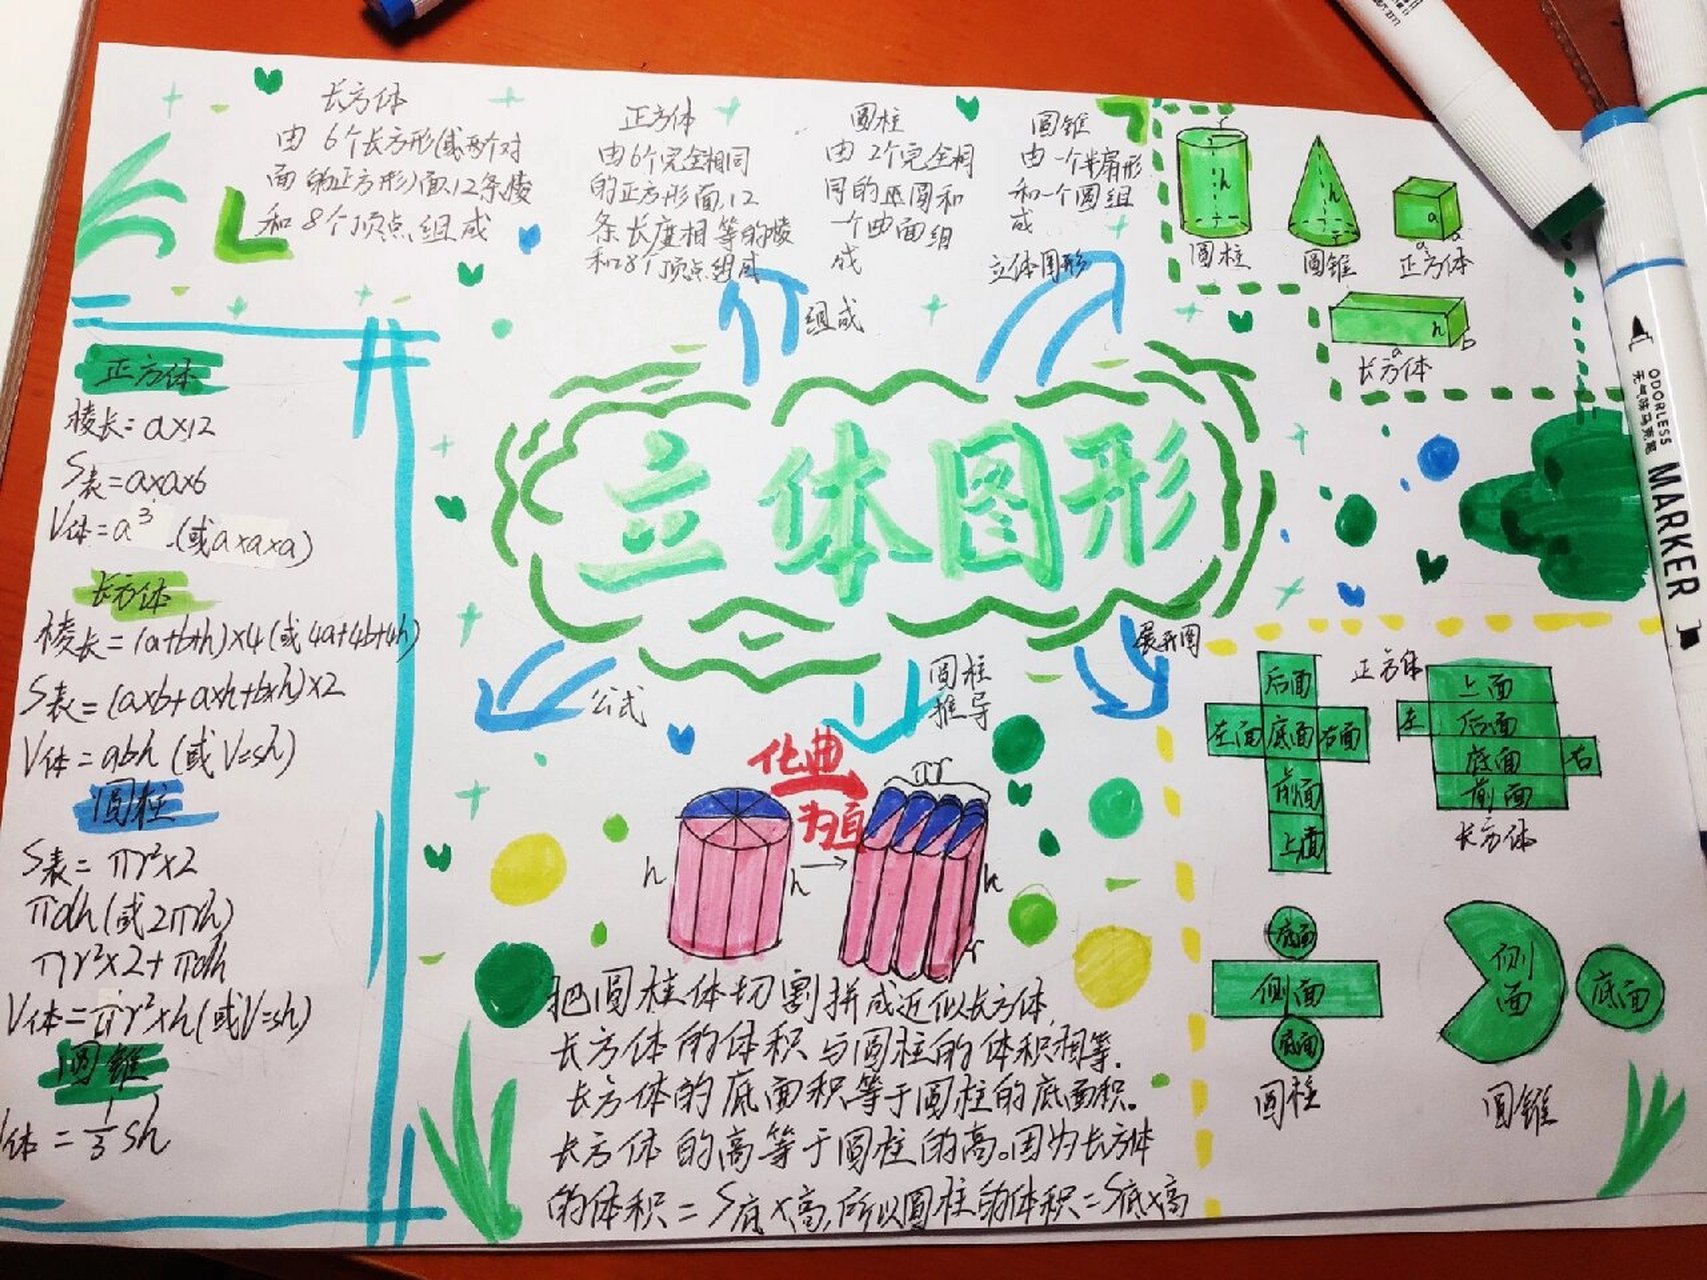 长方体
由6个长方形(或有个对
面的正方形)面,12条棱
和8个顶点组成
正方体
由6个完全相同
的正方形面,12
条长度相等的棱
和8个顶点组成
圆柱
由2个完全相
同的圆和
一个曲面组
成
圆锥
由一个扇形
和一个圆组
成
立体图形
组成
r
h
圆柱
h
r
圆锥
a
a
a
正方体
h
a
b
长方体
立体图形
正方体
棱长=a×12
S表=a×a×6
V体=a³ (或a×a×a)
长方体
棱长=(a+b+h)×4(或4a+4b+4h)
S表=(a×b+a×h+b×h)×2
V体=abh (或V=sh)
圆柱
S表= πr²×2
πdh(或2πrh)
πr²×2+πdh
V体=πr²×h(或V=sh)
圆锥
V体=1/3 sh
公式
圆柱
推导
展开图
化曲
为直
πr
h
h
h
r
把圆柱体切割拼成近似长方体,
长方体的体积与圆柱的体积相等.
长方体的底面积等于圆柱的底面积。
长方体的高等于圆柱的高。因为长方体
的体积=S底×高,所以圆柱的体积=S底×高
正方体
后面
左面 底面 右面
前面
上面
上面
左 后面
底面 右
前面
长方体
底面
侧面
底面
圆柱
侧
面
底面
圆锥
ODORLESS
MARKER